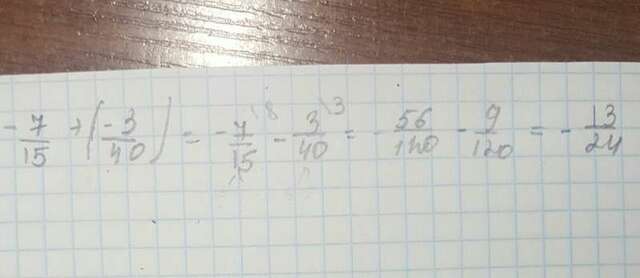 -7/15 + (-3/40) = -7\8/15 - 3\3/40 = -56/120 - 9/120 = -13/24